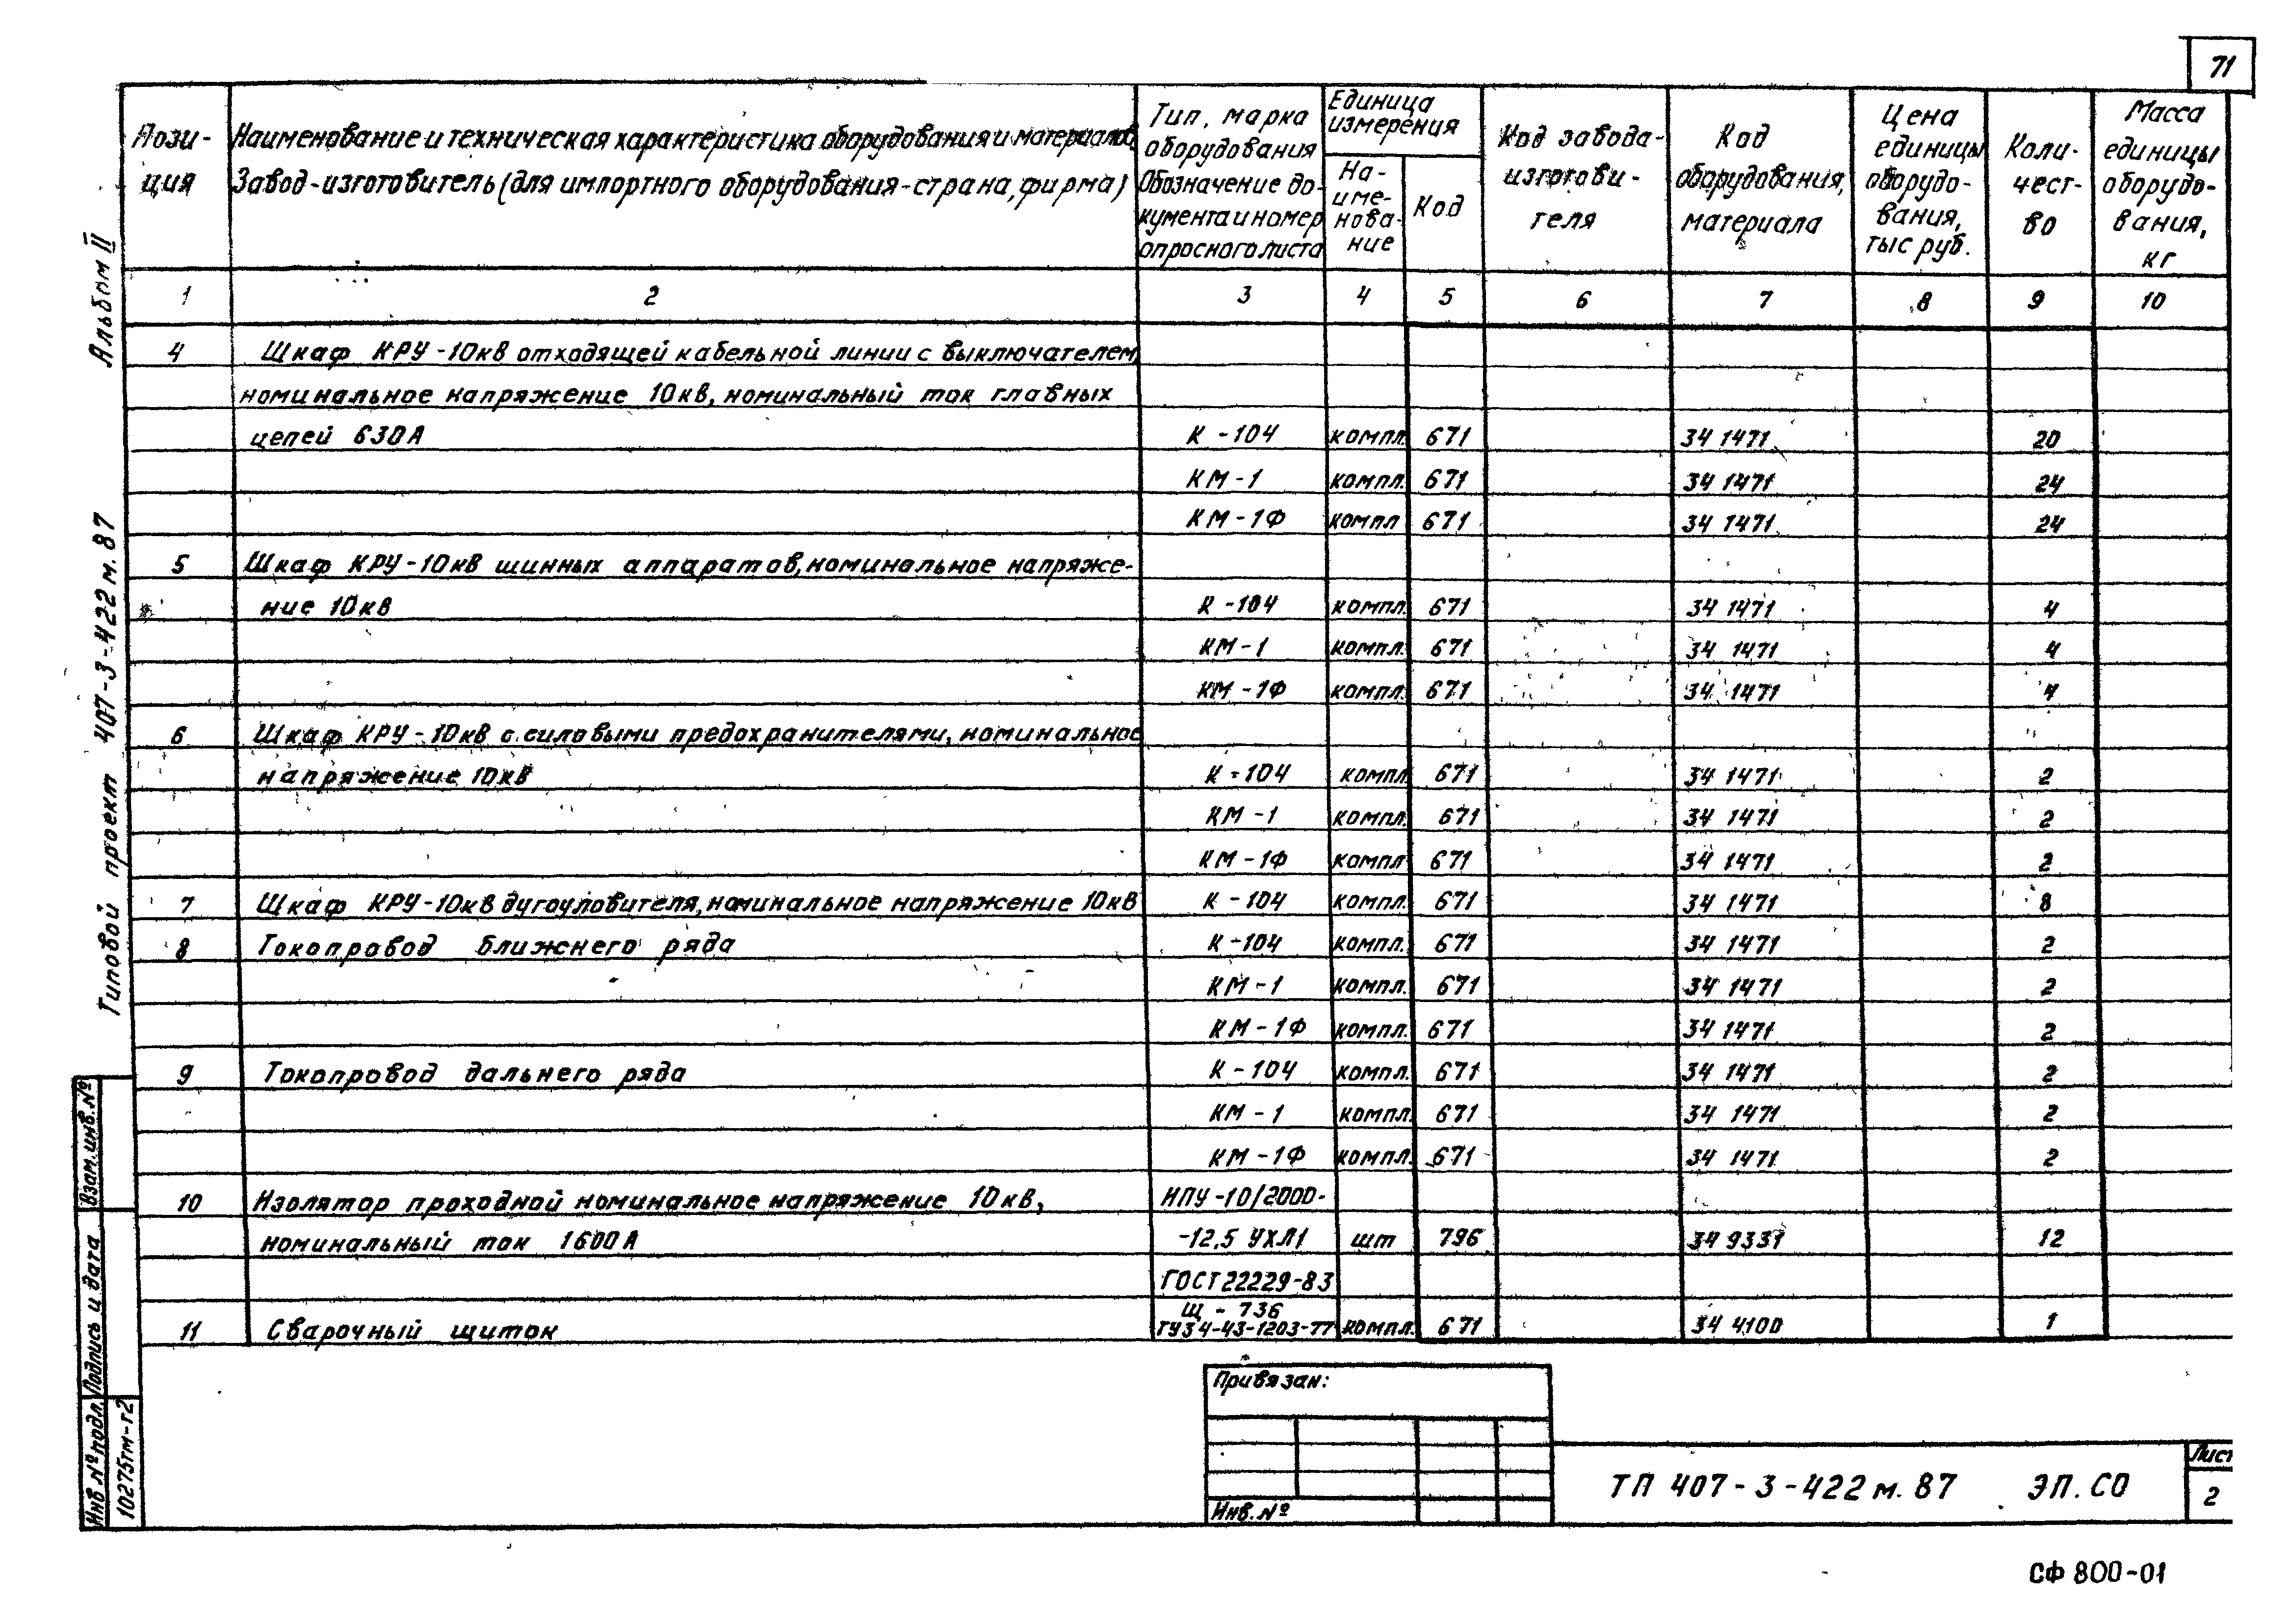 71
Пози-
ция
Наименование и техническая характеристика оборудования и материалов,
Завод-изготовитель (для импортного оборудования-страна, фирма)
Тип, марка
оборудования
Обозначение до-
кумента и номер
опросного листа
Единица
измерения
На-
име-
нова-
ние
Код
Код завода-
изготови-
теля
Код
оборудования,
материала
Цена
единицы
оборудо-
вания,
тыс руб.
Коли-
чест-
во
Масса
единицы
оборудо-
вания,
кг
1 2 3 4 5 6 7 8 9 10
4 Шкаф КРУ-10кв отходящей кабельной линии с выключателем,
номинальное напряжение 10кв, номинальный ток главных
цепей 630А К-104 компл. 671 34 1471 20
КМ-1 компл. 671 34 1471 24
КМ-1Ф компл 671 34 1471 24
5 Шкаф КРУ-10кв шинных аппаратов, номинальное напряже-
ние 10кв К-104 компл. 671 34 1471 4
КМ-1 компл. 671 34 1471 4
КМ-1Ф компл. 671 34 1471 4
6 Шкаф КРУ-10кв с силовыми предохранителями, номинальное
напряжение 10кв К-104 компл 671 34 1471 2
КМ-1 компл. 671 34 1471 2
КМ-1Ф компл 671 34 1471 2
7 Шкаф КРУ-10кв дугоуловителя, номинальное напряжение 10кв К-104 компл. 671 34 1471 8
8 Токопровод ближнего ряда К-104 компл. 671 34 1471 2
КМ-1 компл. 671 34 1471 2
КМ-1Ф компл. 671 34 1471 2
9 Токопровод дальнего ряда К-104 компл. 671 34 1471 2
КМ-1 компл. 671 34 1471 2
КМ-1Ф компл. 671 34 1471 2
10 Изолятор проходной номинальное напряжение 10кв, ИПУ-10/2000-
номинальный ток 1600А -12.5 УХЛ1 шт 796 34 9331 12
ГОСТ 22229-83
Щ-736
11 Сварочный щиток ТУ34-43-1203-77 компл. 671 34 4100 1
Альбом II
Типовой проект 407-3-422м.87
Взам.инв.№
Подпись и дата
Инв №подл.
10275тм-т2
Привязан:
Инв.№
ТП 407-3-422м.87 ЭП.СО
Лист
2
СФ 800-01